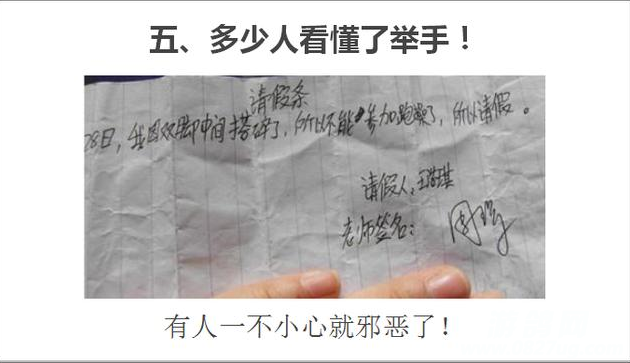 五、多少人看懂了举手！
请假条
28日，我因双脚中间搭碎了，所以不能参加跑操了，所以请假。
请假人：王浩琪
老师签名：
有人一不小心就邪恶了！